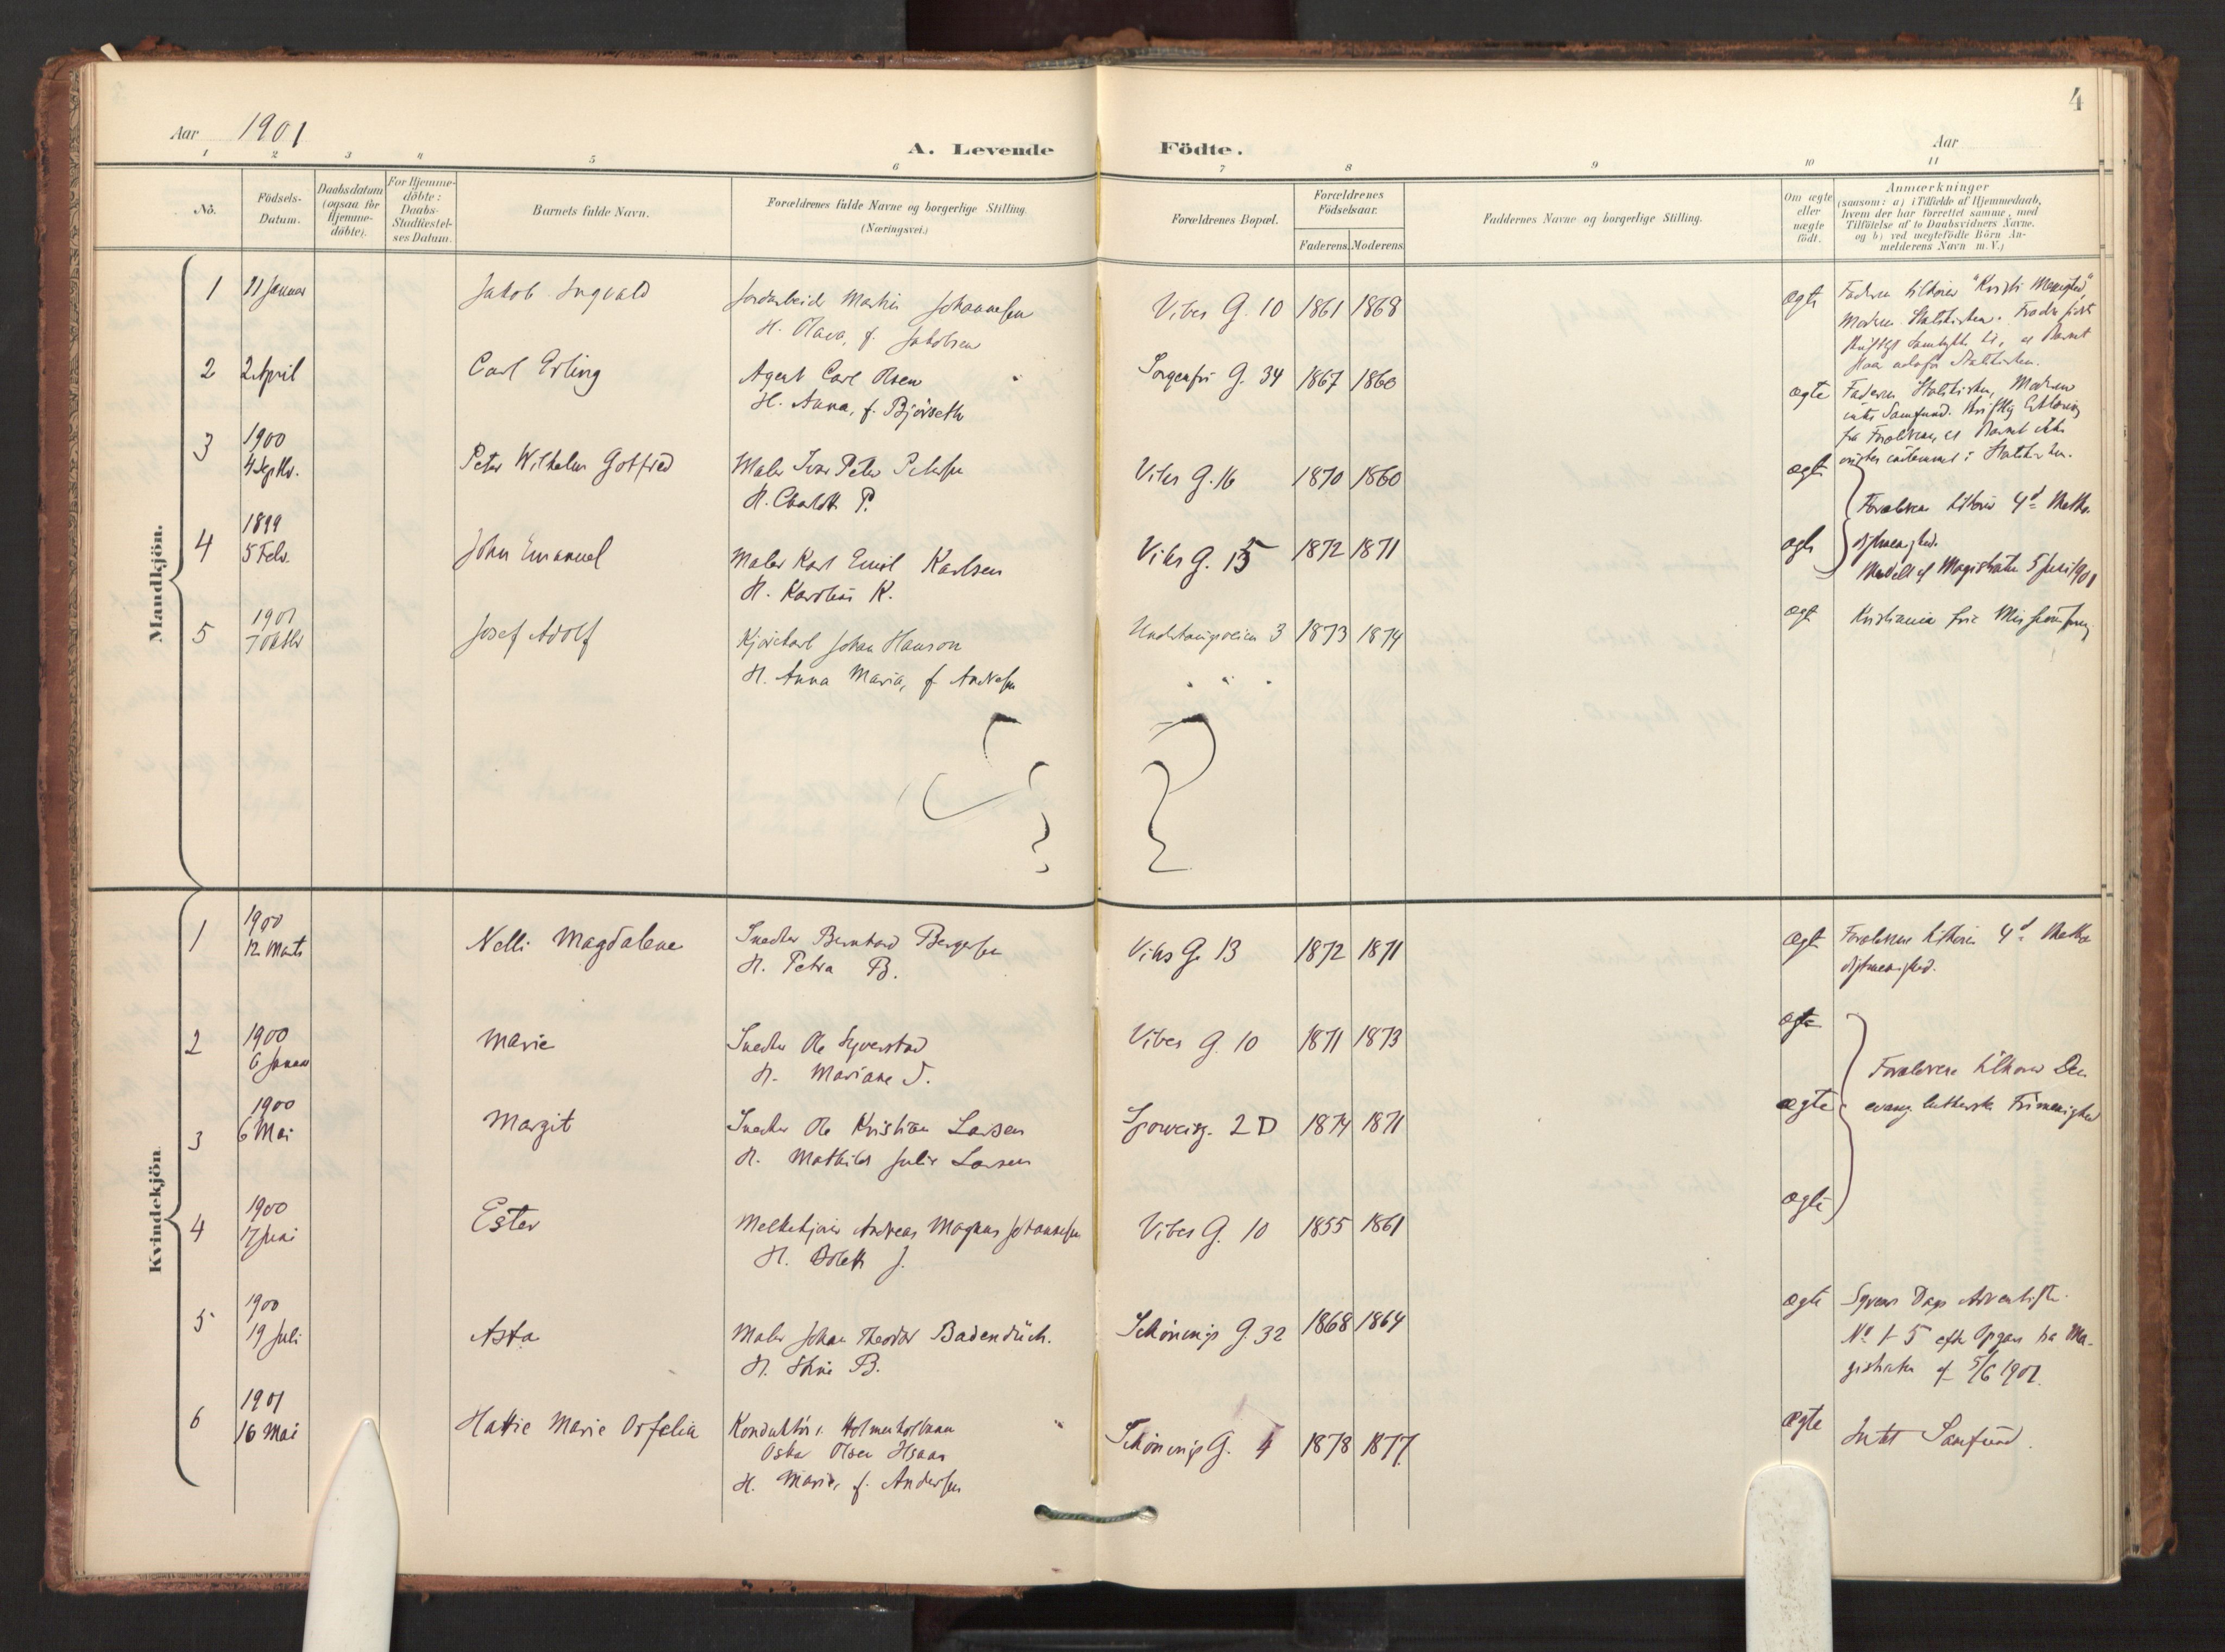 4
Aar 1901
A. Levende Födte.
Aar
1 2 3 4 5 6 7 8 9 10 11
No.
Födsels-
Datum.
Daabsdatum
(ogsaa for
Hjemme-
döbte).
For Hjemme-
döbte:
Daabs-
Stadfæstel-
ses Datum.
Barnets fulde Navn.
Forældrenes fulde Navne og borgerlige Stilling.
(Næringsvei.)
Forældrenes Bopæl.
Forældrenes
Födselsaar.
Faderens. Moderens.
Faddernes Navne og borgerlige Stilling.
Om ægte
eller
uægte
födt.
Anmærkninger
(saasom: a) i Tilfælde af Hjemmedaab,
hvem der har forrettet samme, med
Tilföielse af to Daabsvidners Navne.
og b) ved uægtefödte Börn An-
melderens Navn m. V.)
Mandkjön.
1 11 Januar Jakob Ingvald Jordarbeider Martin Johannesen Vibes G. 10 1861 1868 ægte Faderen tilhører "Kristi Menighed"
H. Olava, f. Jakobsen
Moderen Statskirken.
2 2 April Carl Erling Agent Carl Olsen Sorgenfri G. 34 1867 1860 ægte Faderen Statskirken, Moderen
H. Anna, f. Bjørseth
intet Samfund. Skriftlig Erklæring
fra Forældrene, at Barnet ikke
ønskes indlemmet i Statskirken.
3 1900
4 Septbr. Peter Wilhelm Gotfred Maler Ivar Peter Petersen Vibes G. 16 1870 1860 ægte
H. Charlotte P.
Forældrene tilhører 4d Metho-
distmenighed.
Meddelt af Magistraten 5 Juni 1901
4 1899
5 Febr. John Emanuel Maler Karl Emil Karlsen Vibes G. 15 1872 1871 ægte
H. Karoline K.
5 1901
7 Oktbr Josef Adolf Kjørekarl Johan Hanson Underhaugsveien 3 1873 1874 ægte Kristiania frie Missionsforening
H. Anna Maria, f. Andresen
Kvindekjön
1 1900
12 Marts Nelli Magdalene Snedker Bernhard Bergersen Vibes G. 13 1872 1871 ægte Forældrene tilhører 4d Metho
H. Petra B.
distmenighed.
2 1900
6 Januar Marie Snedker Ole Syverstad Vibes G. 10 1871 1873 ægte
H. Mariane S.
Forældrene tilhører Den
evang. lutherske Frimenighed
3 1900
6 Mai Margit Snedker Ole Kristian Larsen Sporveisg. 2D 1874 1871 ægte
H. Mathilde Julie Larsen
4 1900
17 Juni Ester Melkekjører Andreas Magnus Johannesen Vibes G. 10 1855 1861 ægte
H. Bolette J.
5 1900
19 Juli Asta Maler Johan Theodor Badendück. Schønings G. 32 1868 1864 ægte Syvende Dags Adventister.
H. Stine B.
No 1-5 efter Opgave fra Ma-
gistraten af 5/6 1901.
6 1901
16 Mai Hattie Marie Orfelia Konduktør v. Holmenkolbanen Schønings G. 4 1878 1877 ægte Intet Samfund.
Oskar Olsen
H. Marie, f. Andersen